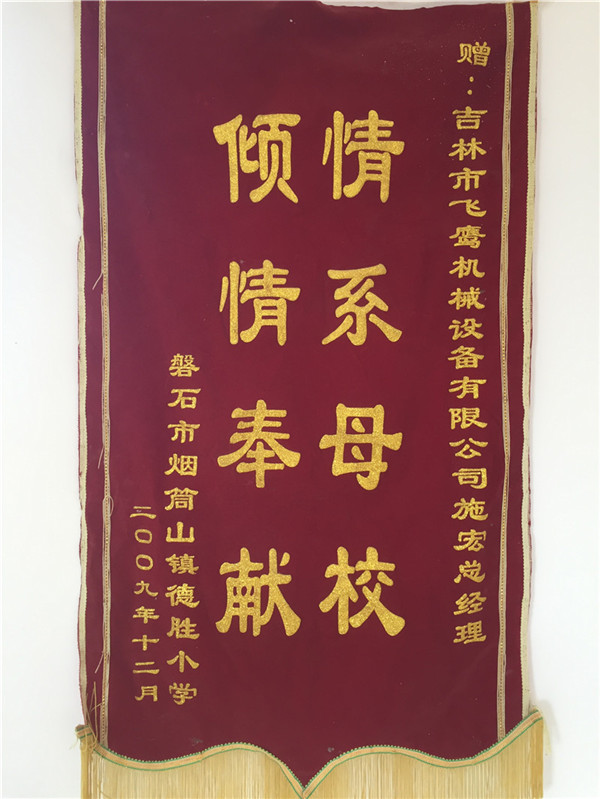 赠：吉林市飞鹰机械设备有限公司施宏总经理
情系母校
倾情奉献
磐石市烟筒山镇德胜小学
二〇〇九年十二月